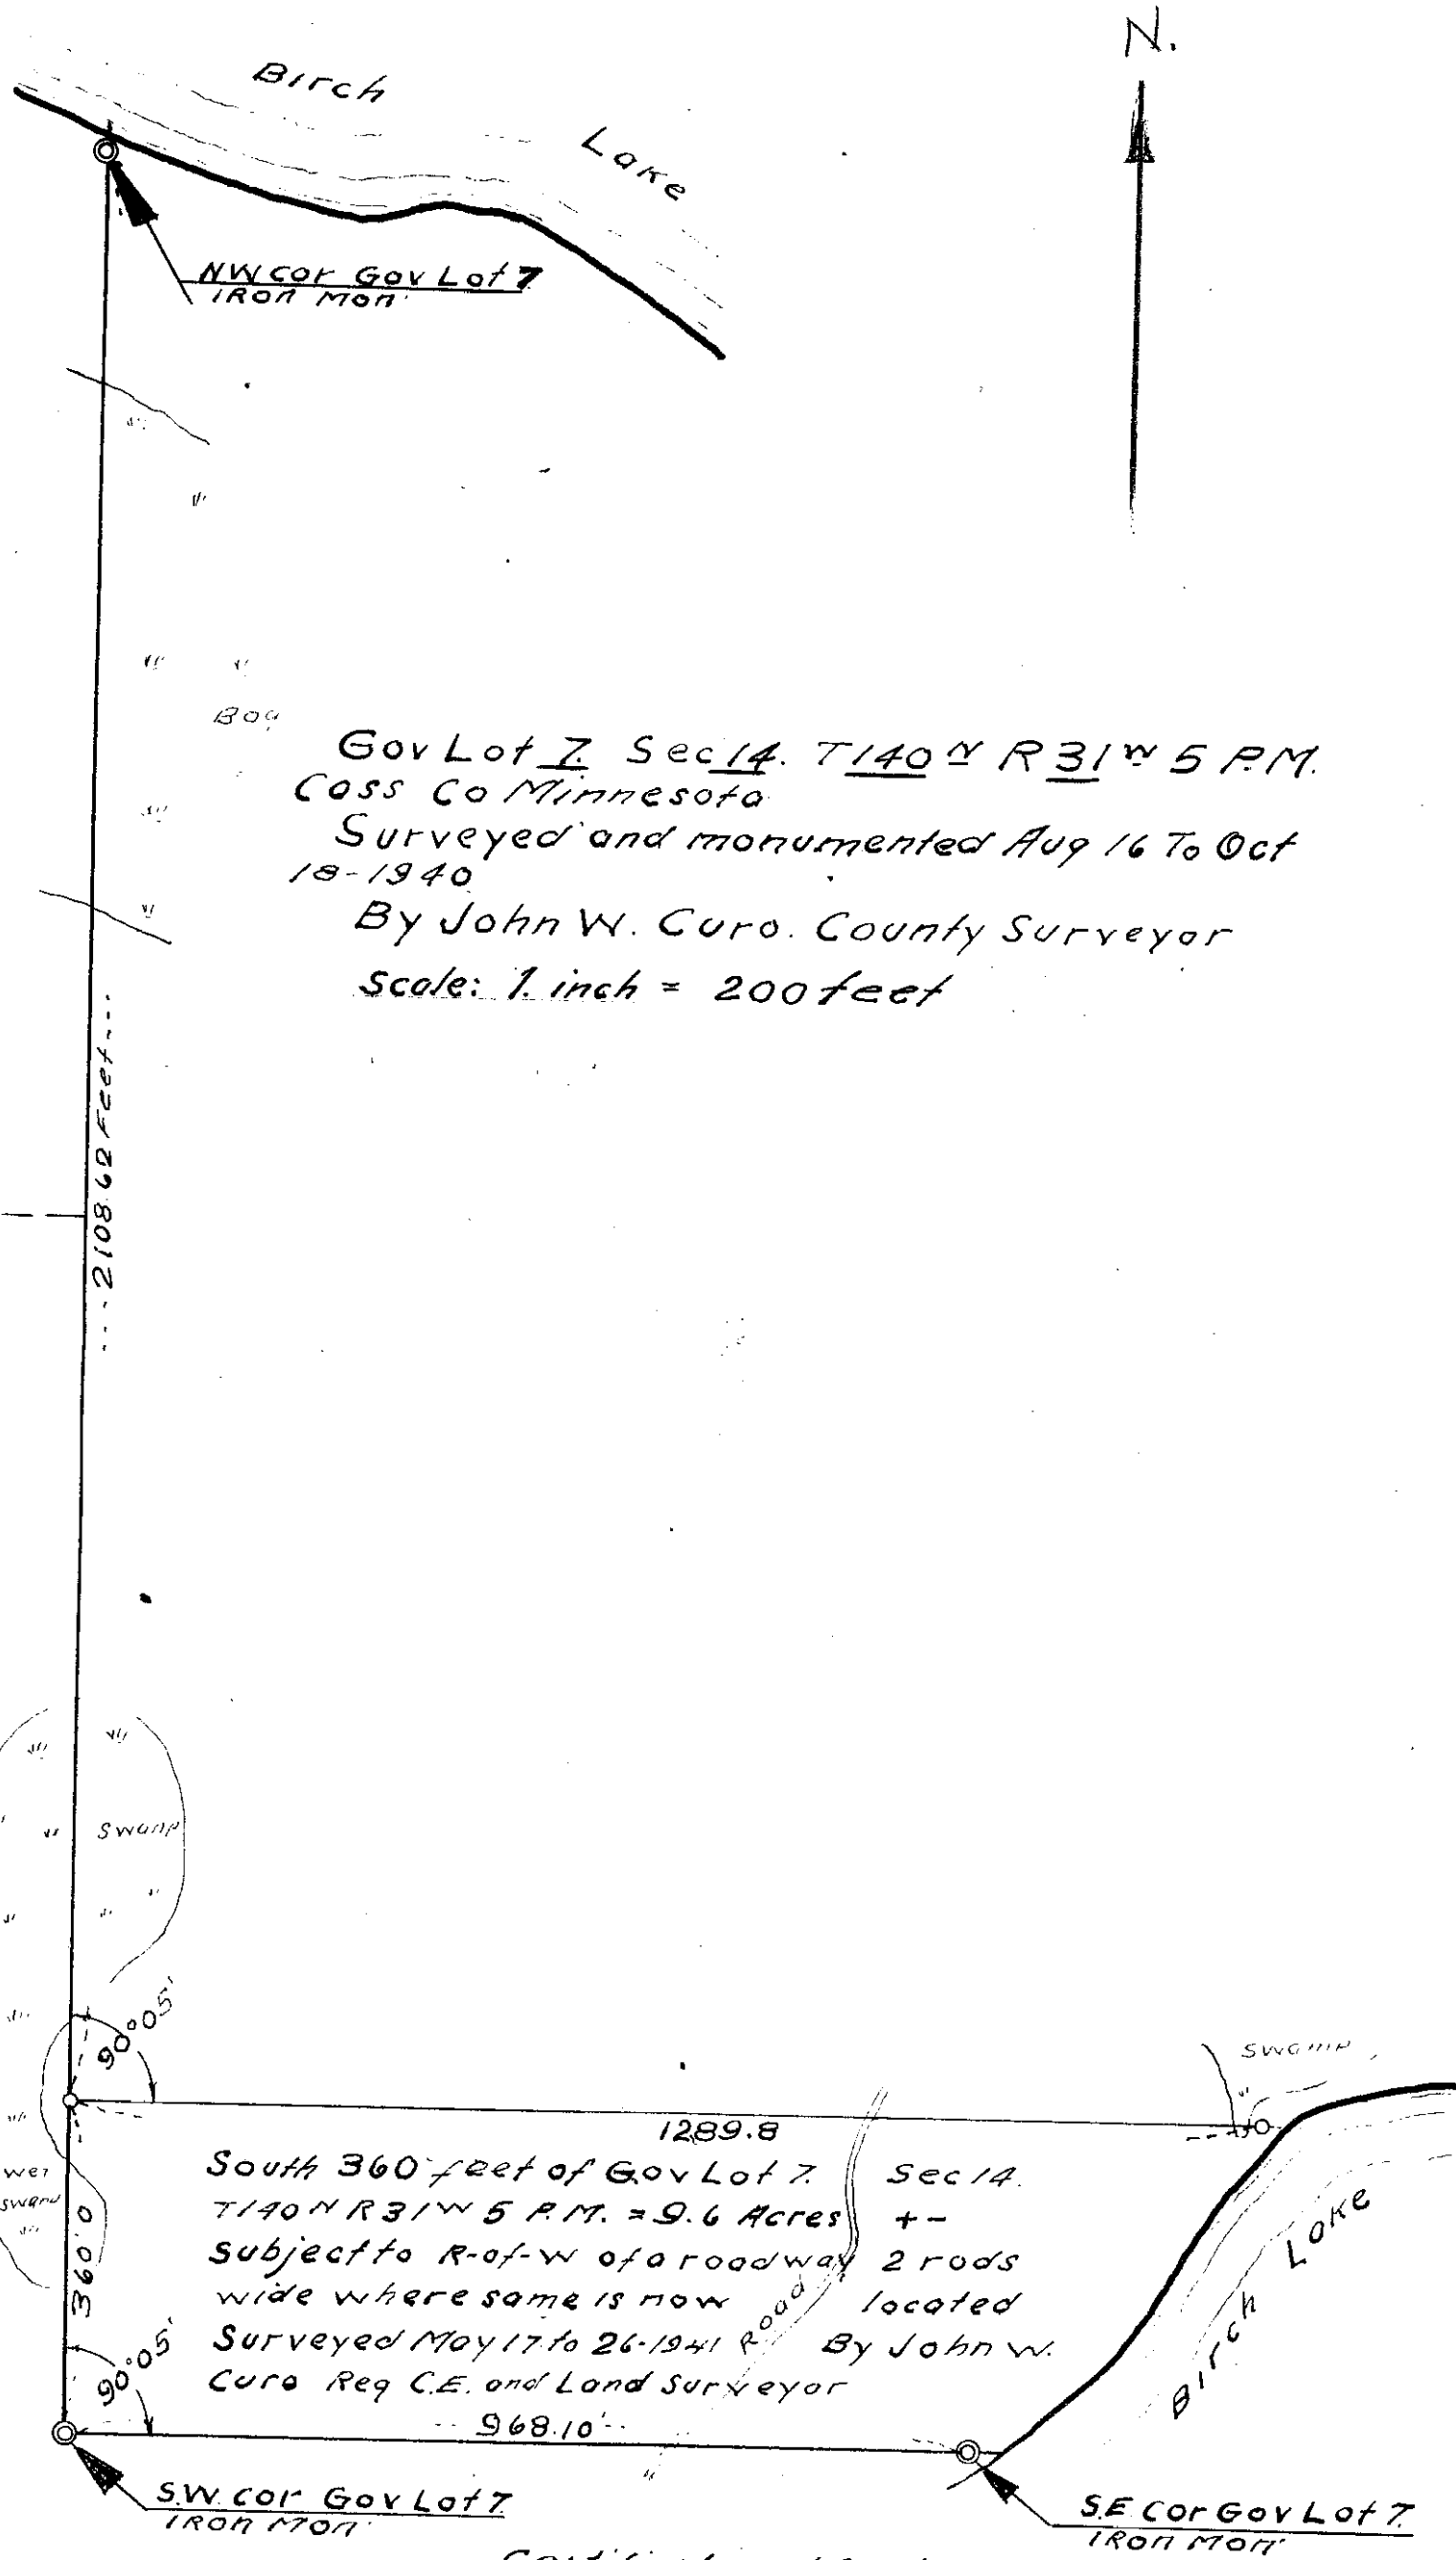 N.
Birch
Lake
NW cor Gov Lot 7
Iron Mon.
Bog
Gov Lot 7. Sec 14. T140 N R 31 W 5 P.M.
Cass Co Minnesota
Surveyed and monumented Aug 16 To Oct
18-1940
By John W. Curo. County Surveyor
Scale: 1. inch = 200 feet
---2108.62 Feet---
Swamp
90°05'
Swamp
1289.8
South 360 feet of Gov Lot 7. Sec 14.
T140 N R 31 W 5 P.M. = 9.6 Acres +-
Subject to R-of-W of a roadway 2 rods
wide where same is now located
Surveyed May 17 to 26-1941 By John W.
Curo Reg C.E. and Land Surveyor
Road
Wet
Swamp
360.0
90°05'
968.10'
Birch Lake
S.W. cor Gov Lot 7.
Iron Mon.
S.E. Cor Gov Lot 7.
Iron Mon.